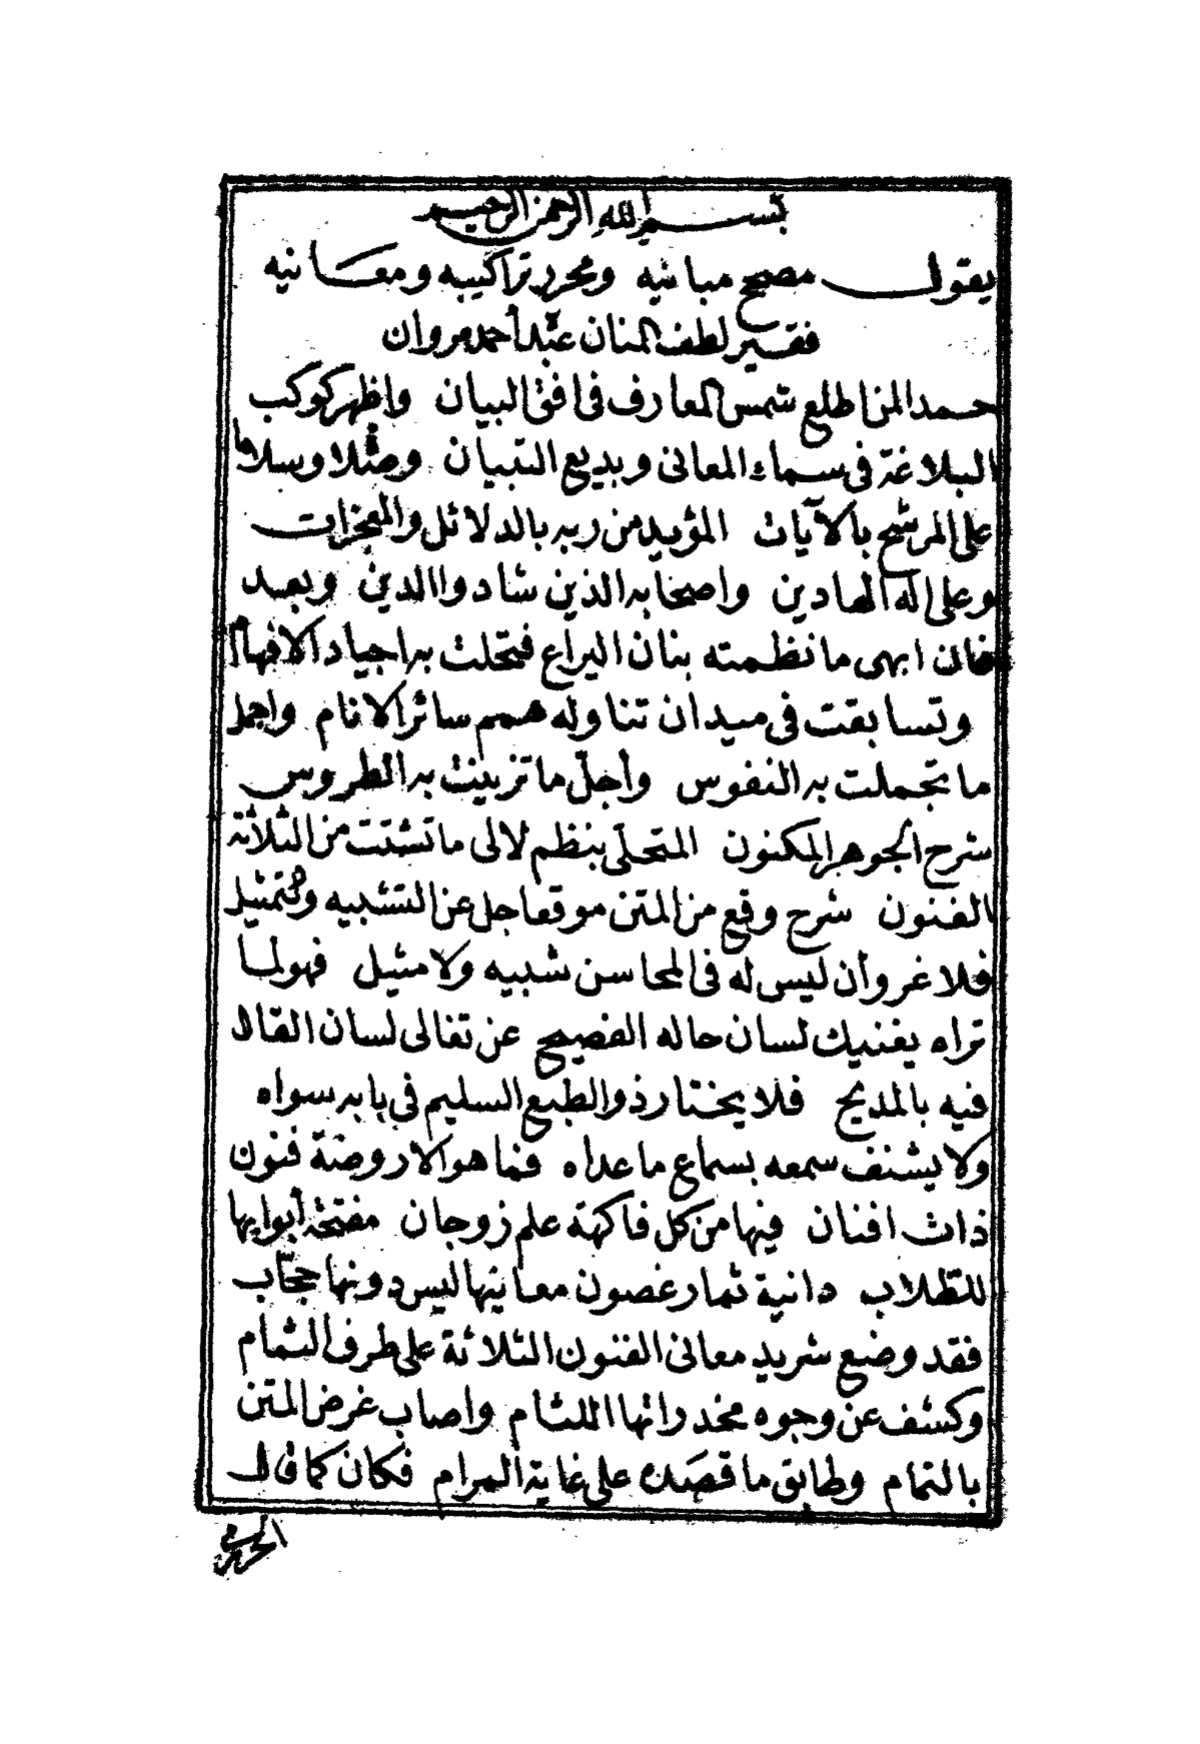 بسم الله الرحمن الرحيم
يقول مصحح مبانيه ومحرر تراكيبه ومعانيه
فقير لطف المنان عبده أحمد مروان
حمدا لمن اطلع شمس المعارف فى افق البيان واظهر كوكب
البلاغة فى سماء المعانى وبديع التبيان وصلاة وسلاما
على المرشح بالآيات المؤيد من ربه بالدلائل والمعجزات
وعلى اله الهادين واصحابه الذين شادوا الدين وبعد
فان ابهى ما نظمته بنان اليراع فتحلت به اجياد الافهام
وتسابقت فى ميدان تناوله همم سائر الانام واجمل
ما تجملت به النفوس وأجلّ ما تزينت به الطروس
شرح الجوهر المكنون المتحلّى بنظم لالى ما تشتت من الثلاثة
الفنون شرح وقع من المتن موقعا جل عن التشبيه والتمثيل
فلا غرو أن ليس له فى المحاسن شبيه ولا مثيل فهو لما
تراه يغنيك لسان حاله الفصيح عن تغالى لسان القال
فيه بالمديح فلا يختار ذو الطبع السليم فى بابه سواه
ولا يشنف سمعه بسماع ما عداه فما هو الا روضة فنون
ذات افنان فيها من كل فاكهة علم زوجان مفتحة أبوابها
للطلاب دانية ثمار غصون معانيها ليس دونها حجّاب
فقد وضع شريد معانى الفنون الثلاثة على طرف الثمام
وكشف عن وجوه مخدراتها اللثام واصاب غرض المتن
بالتمام وطابق ما قصده على غاية المرام فكان كما قال
الحريرى